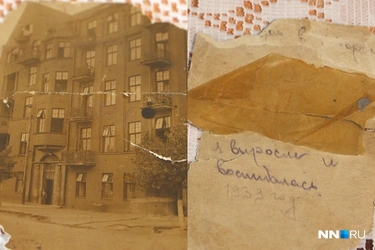 я выросла и
воспиталась.
1933 год
NN.RU